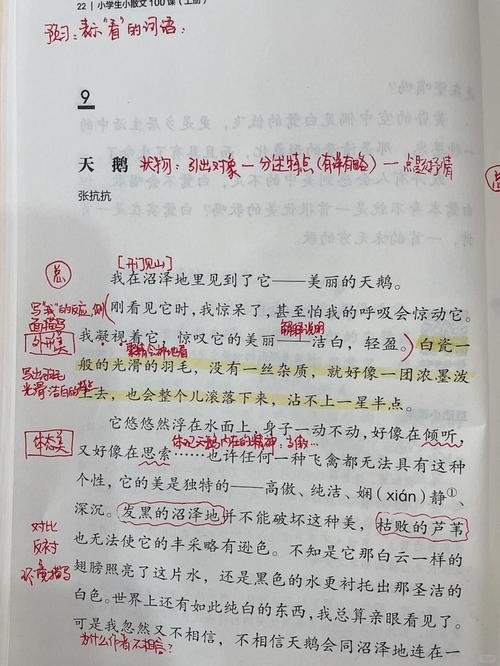 22 | 小学生小散文100课(上册)
预习:表示"看"的词语:
9
天鹅 状物:引出对象—分述特点(有详有略)—点题抒情
张抗抗
[开门见山]
总
我在沼泽地里见到了它——美丽的天鹅。
写"我"的反应,侧面描写
刚看见它时,我惊呆了,甚至怕我的呼吸会惊动它。
解释说明
外形美
我凝视着它,惊叹它的美丽——洁白,轻盈。白瓷一
般的光滑的羽毛,没有一丝杂质,就好像一团浓墨泼
上去,也会整个儿滚落下来,沾不上一星半点。
它悠悠然浮在水面上,身子一动不动,好像在倾听,
体态美
体现天鹅内在的精神:高傲…
又好像在思索……也许任何一种飞禽都无法具有这种
个性,它的美是独特的——高傲、纯洁、娴(xián)静①、
深沉。发黑的沼泽地并不能破坏这种美,枯败的芦苇
对比
反衬
环境描写
也无法使它的丰采略有逊色。不知是它那白云一样的
翅膀照亮了这片水,还是黑色的水更衬托出那圣洁的
白色。世界上还有如此纯白的东西,我总算亲眼看见了。
可是我忽然又不相信,不相信天鹅会同沼泽地连在一
为什么作者不相信?